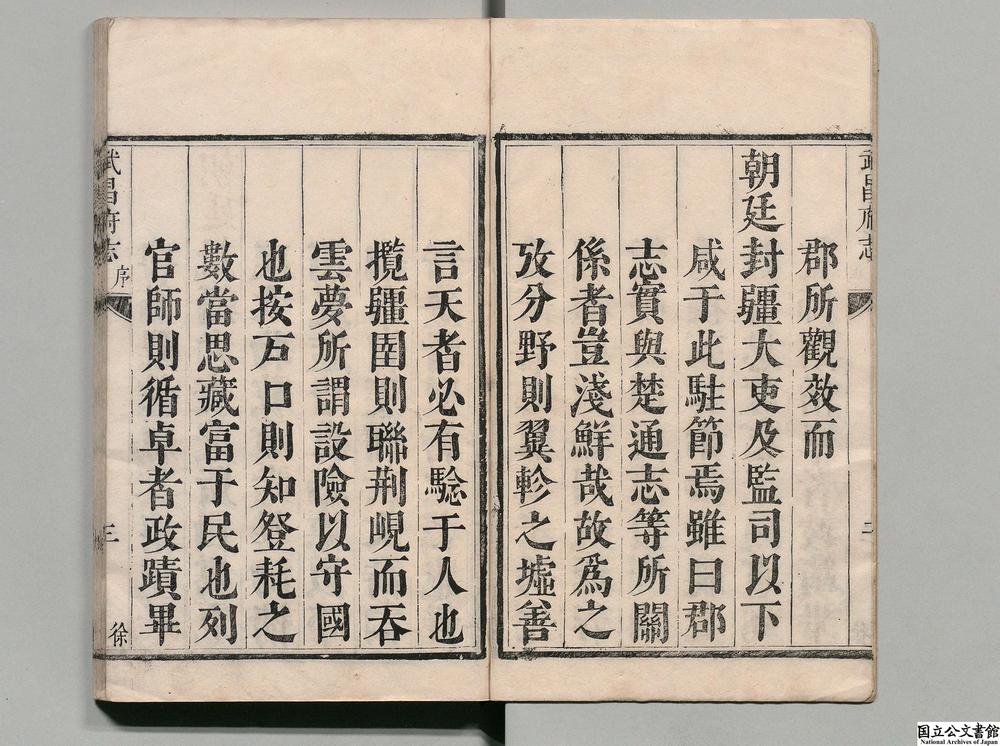 武昌府志
二
郡所觀效而
朝廷封疆大吏及監司以下
咸于此駐節焉雖曰郡
志實與楚通志等所關
係者豈淺鮮哉故爲之
攷分野則翼軫之墟善
言天者必有騐于人也
攬疆圉則聯荆峴而吞
雲夢所謂設險以守國
也按戸口則知登耗之
數當思藏富于民也列
官師則循卓者政蹟畢
武昌府志 序 三 徐
国立公文書館
National Archives of Japan